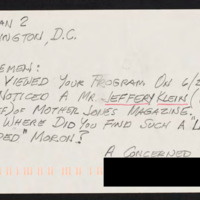 AN 2
INGTON, D.C.
EMEN:
VIEWED YOUR PROGRAM ON 6/2
NOTICED A MR. JEFFERY KLEIN (
EF) OF MOTHER JONES MAGAZINE.
WHERE DID YOU FIND SUCH A "L
DED" MORON?
A CONCERNED